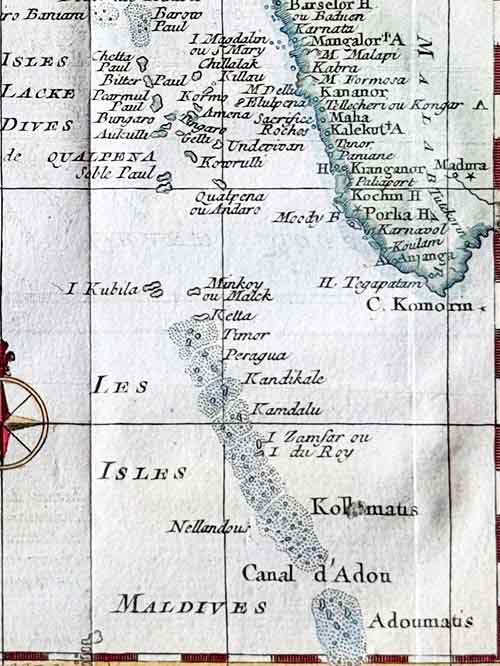 ro Baniani
Barow
Paul
Barselor H
ou Baduen
Karnata
I Magdalin
ou S. Mary
Mangalor A
M. Malapi
ISLES
Chetta
Paul
Chillalak
Kabra
Bitter Paul
Killau
M Formosa
LACKE
Kananor
Pearmul
Paul
Kormo
M Delli
Elulpena
Tellecheri ou Kongar A
DIVES
Bungaro
Amena
Sacrifice
Rochos
Maha
Kalekut A
Aukulli
Gelli
Undevivan
Tanor
Paniane
de QUALPENA
Kowrulli
H Kranganor
Madura
Soble Paul
Paliaport
Qualpena
ou Andaro
Kochin H
Porka H
Moody F
Karnavol
Tutukorin
Koulam
MALABAR
Anjanga
I Kubila
Minkoy
ou Malek
H. Tegapatam
C. Komorin
Ketta
Timor
Peragua
LES
Kandikale
Kamdalu
I Zamfar ou
I du Roy
ISLES
Nellandous
Canal d'Adou
MALDIVES
Adoumatis